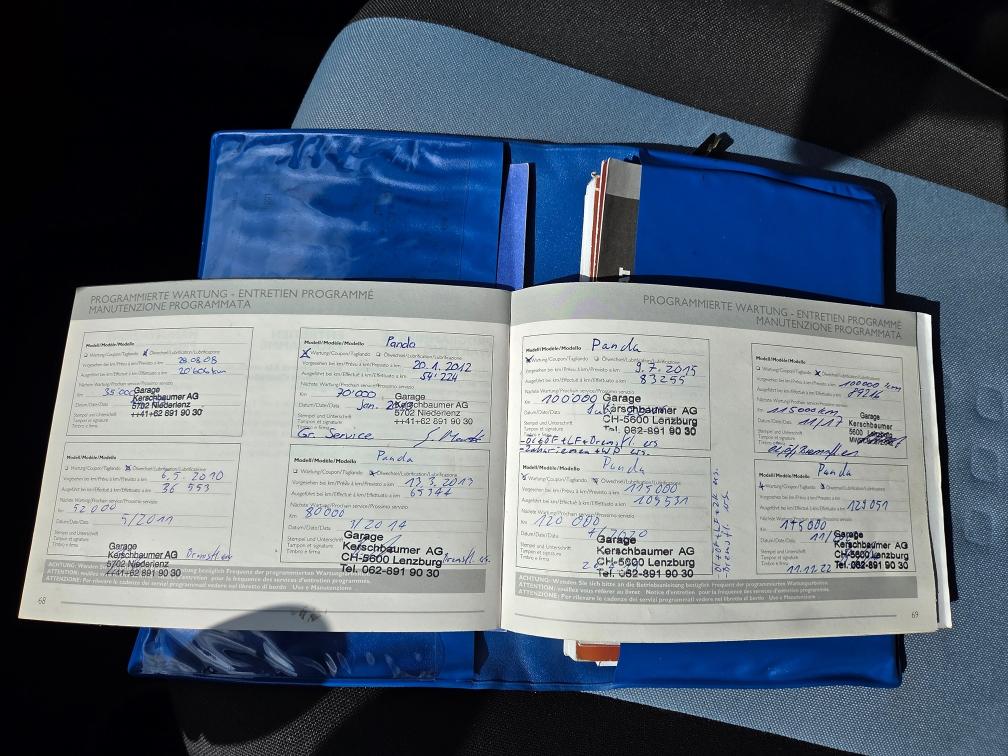 PROGRAMMIERTE WARTUNG - ENTRETIEN PROGRAMMÉ
MANUTENZIONE PROGRAMMATA
Modell/Modèle/Modello
Wartung/Coupon/Tagliando Ölwechsel/Lubrification/Lubrificazione
Vorgesehen bei km/Prévu à km/Previsto a km 28.08.08
Ausgeführt bei km/Effectué à km/Effettuato a km
Nächste Wartung/Prochain service/Prossimo servizio
Km
Datum/Date/Data
Stempel und Unterschrift
Tampon et signature
Timbro e firma
Garage
Kerschbaumer AG
5702 Niederlenz
++41+62 891 90 30
Modell/Modèle/Modello
Wartung/Coupon/Tagliando Ölwechsel/Lubrification/Lubrificazione
Vorgesehen bei km/Prévu à km/Previsto a km 6.5.2010
Ausgeführt bei km/Effectué à km/Effettuato a km 36 553
Nächste Wartung/Prochain service/Prossimo servizio
Km 52000
Datum/Date/Data 5/2011
Stempel und Unterschrift
Tampon et signature
Timbro e firma
Garage
Kerschbaumer AG
5702 Niederlenz
++41+62 891 90 30
Modell/Modèle/Modello Panda
Wartung/Coupon/Tagliando Ölwechsel/Lubrification/Lubrificazione
Vorgesehen bei km/Prévu à km/Previsto a km 20.1.2012
Ausgeführt bei km/Effectué à km/Effettuato a km 54'224
Nächste Wartung/Prochain service/Prossimo servizio
Km 70'000
Datum/Date/Data Jan.
Stempel und Unterschrift
Tampon et signature
Timbro e firma
Garage
Kerschbaumer AG
5702 Niederlenz
++41+62 891 90 30
Gr. Service
Modell/Modèle/Modello Panda
Wartung/Coupon/Tagliando Ölwechsel/Lubrification/Lubrificazione
Vorgesehen bei km/Prévu à km/Previsto a km 13.3.2013
Ausgeführt bei km/Effectué à km/Effettuato a km 65344
Nächste Wartung/Prochain service/Prossimo servizio
Km 80000
Datum/Date/Data 3/2014
Stempel und Unterschrift
Tampon et signature
Timbro e firma
Garage
Kerschbaumer AG
CH-5600 Lenzburg
Tel. 062-891 90 30
ACHTUNG: Wenden Sie sich bitte an die Betriebsanleitung bezüglich Frequenz der programmierten Wartungsarbeiten.
ATTENTION: veuillez vous référer au livret Notice d'entretien pour la fréquence des services d'entretien programmés.
ATTENZIONE: Per rilevare la cadenza dei servizi programmati vedere nel libretto di bordo Uso e Manutenzione
68
PROGRAMMIERTE WARTUNG - ENTRETIEN PROGRAMMÉ
MANUTENZIONE PROGRAMMATA
Modell/Modèle/Modello Panda
Wartung/Coupon/Tagliando Ölwechsel/Lubrification/Lubrificazione
Vorgesehen bei km/Prévu à km/Previsto a km 9.7.2015
Ausgeführt bei km/Effectué à km/Effettuato a km 83255
Nächste Wartung/Prochain service/Prossimo servizio
Km 100000
Datum/Date/Data
Stempel und Unterschrift
Tampon et signature
Timbro e firma
Garage
Kerschbaumer AG
CH-5600 Lenzburg
Tel. 062-891 90 30
Modell/Modèle/Modello Panda
Wartung/Coupon/Tagliando Ölwechsel/Lubrification/Lubrificazione
Vorgesehen bei km/Prévu à km/Previsto a km 115000
Ausgeführt bei km/Effectué à km/Effettuato a km 105531
Nächste Wartung/Prochain service/Prossimo servizio
Km 120 000
Datum/Date/Data
Stempel und Unterschrift
Tampon et signature
Timbro e firma
Garage
Kerschbaumer AG
CH-5600 Lenzburg
Tel. 062-891 90 30
Modell/Modèle/Modello
Wartung/Coupon/Tagliando Ölwechsel/Lubrification/Lubrificazione
Vorgesehen bei km/Prévu à km/Previsto a km 100000 km
Ausgeführt bei km/Effectué à km/Effettuato a km
Nächste Wartung/Prochain service/Prossimo servizio
Km 115000km
Datum/Date/Data 11/17
Stempel und Unterschrift
Tampon et signature
Timbro e firma
Garage
Kerschbaumer
5600
Modell/Modèle/Modello Panda
Wartung/Coupon/Tagliando Ölwechsel/Lubrification/Lubrificazione
Vorgesehen bei km/Prévu à km/Previsto a km
Ausgeführt bei km/Effectué à km/Effettuato a km
Nächste Wartung/Prochain service/Prossimo servizio
Km
Datum/Date/Data
Stempel und Unterschrift
Tampon et signature
Timbro e firma
Garage
Kerschbaumer AG
CH-5600 Lenzburg
Tel. 062-891 90 30
11.11.22
ACHTUNG: Wenden Sie sich bitte an die Betriebsanleitung bezüglich Frequenz der programmierten Wartungsarbeiten.
ATTENTION: veuillez vous référer au livret Notice d'entretien pour la fréquence des services d'entretien programmés.
ATTENZIONE: Per rilevare la cadenza dei servizi programmati vedere nel libretto di bordo Uso e Manutenzione
69